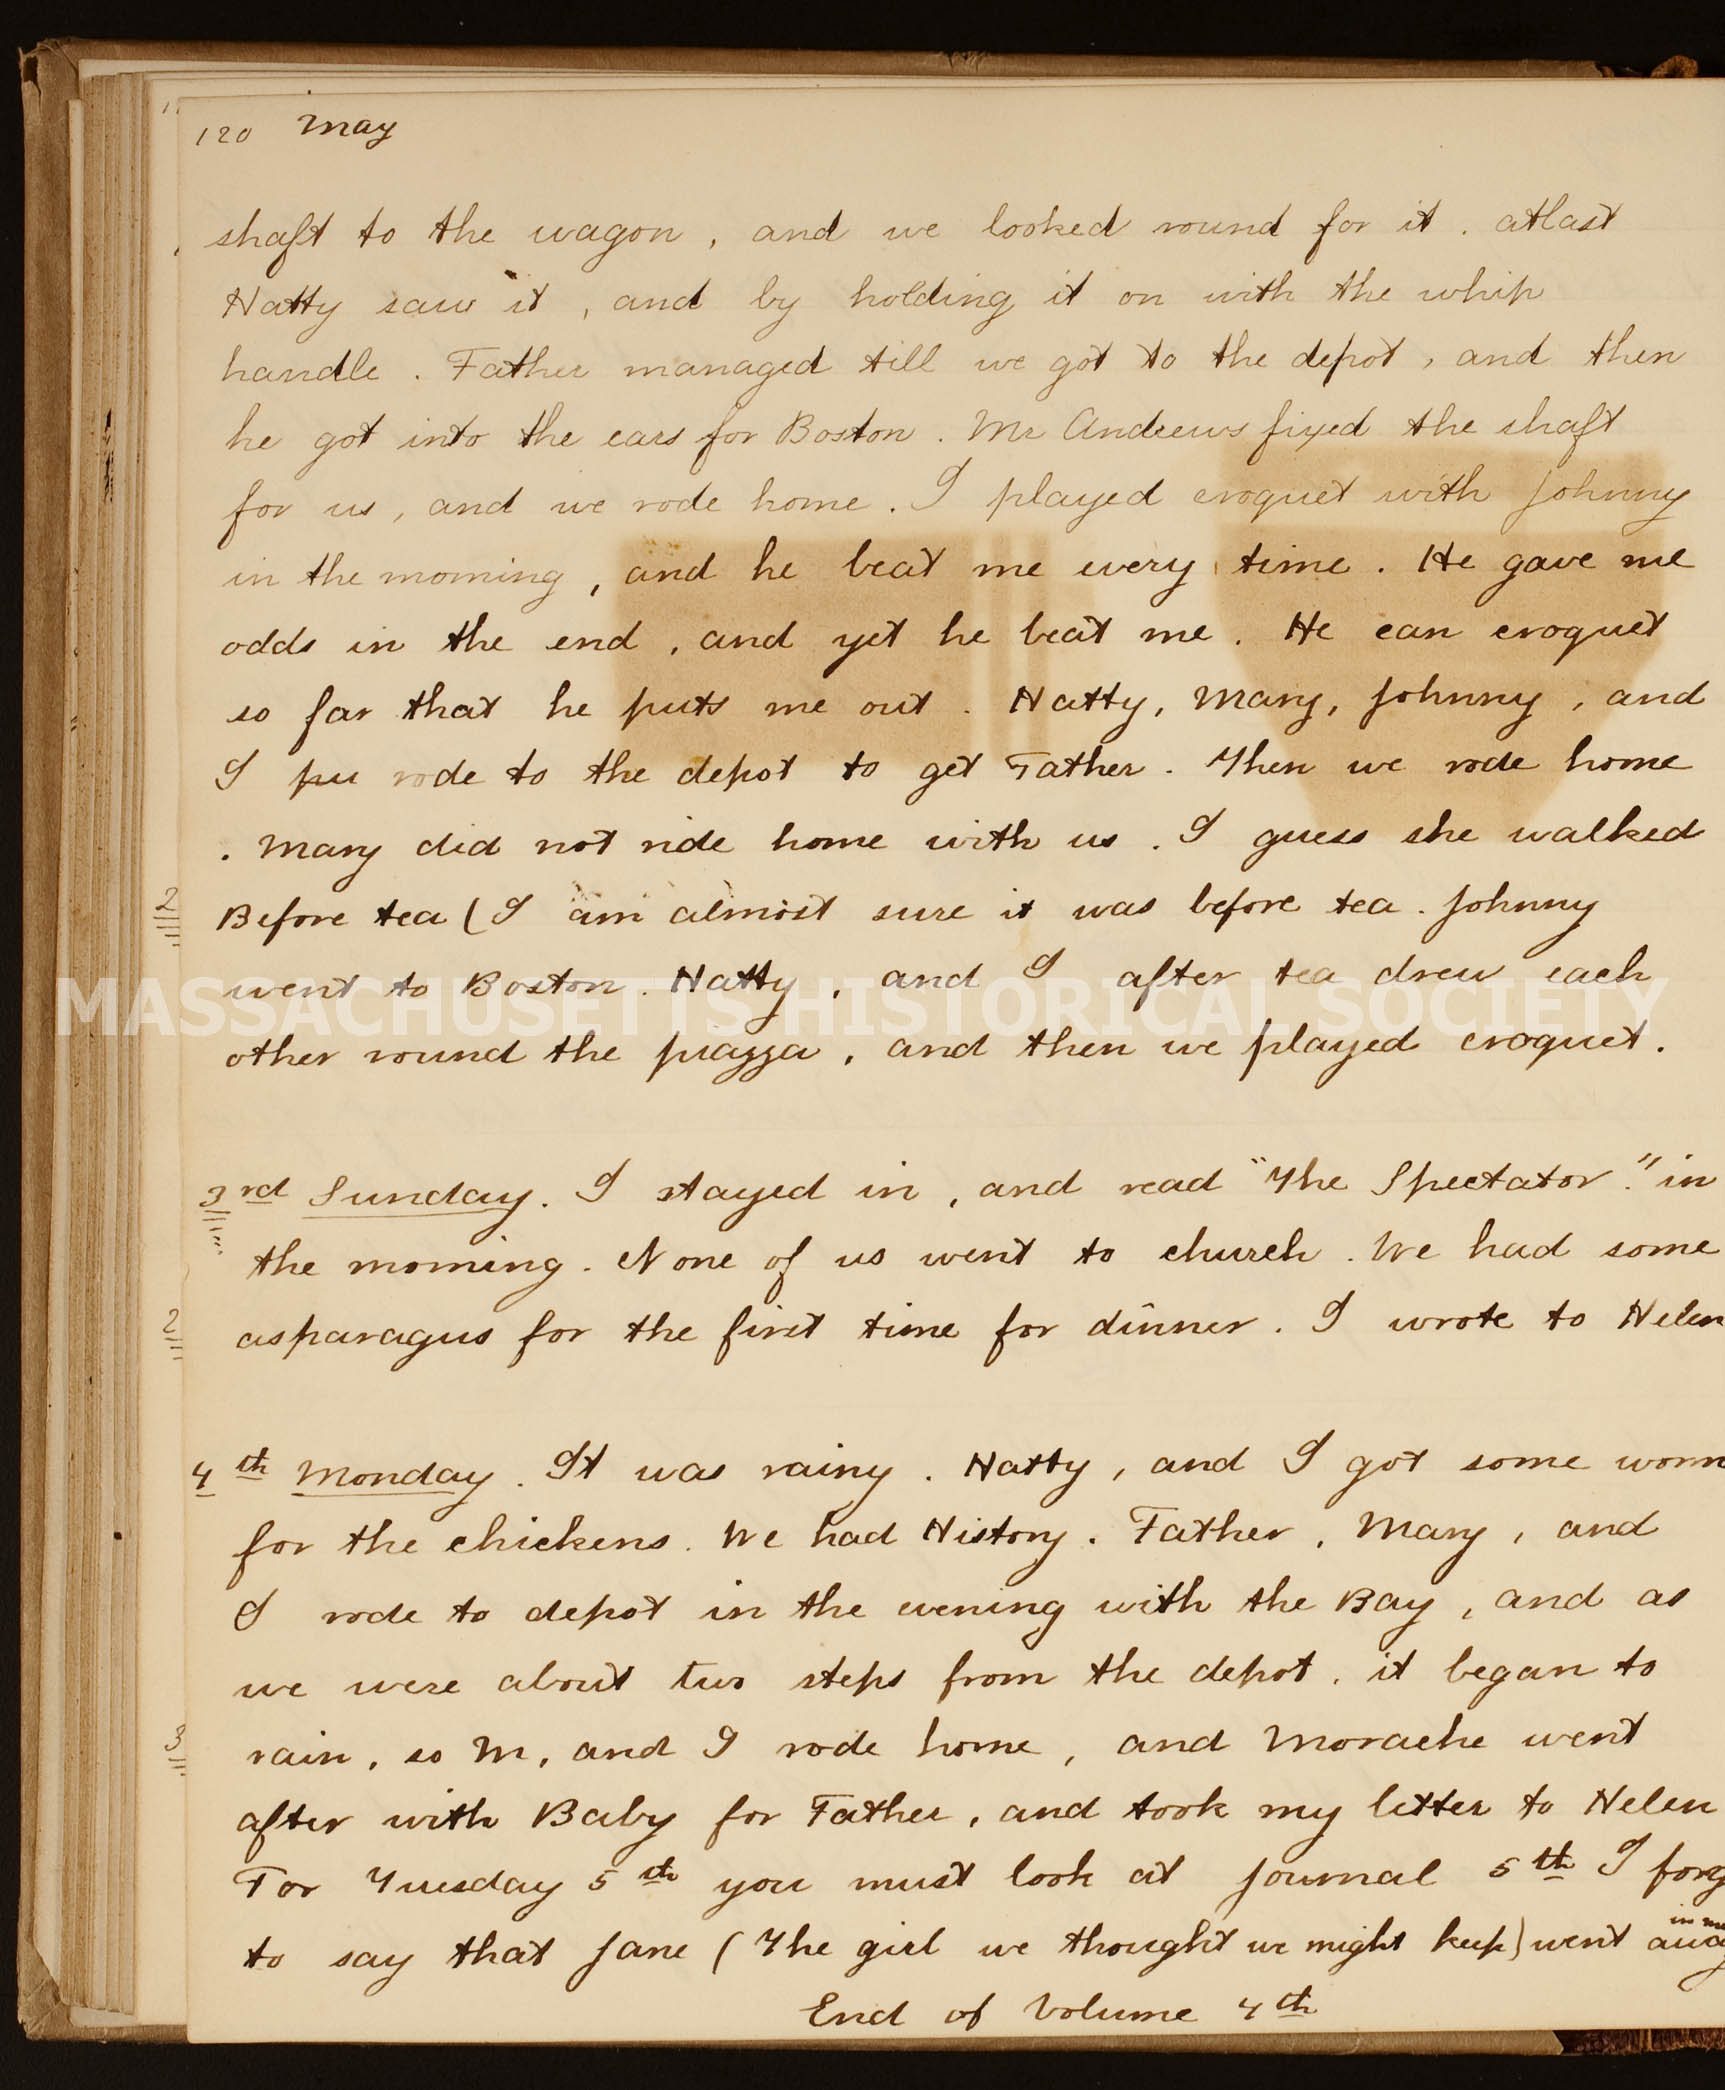 120 May
shaft to the wagon, and we looked round for it. atlast
Natty saw it, and by holding it on with the whip
handle. Father managed till we got to the depot, and then
he got into the cars for Boston. Mr Andrews fixed the shaft
for us, and we rode home. I played croquet with Johnny
in the morning, and he beat me every time. He gave me
odds in the end, and yet he beat me. He can croquet
so far that he puts me out. Natty, Mary, Johnny, and
I pu rode to the depot to get Father. Then we rode home
. Mary did not ride home with us. I guess she walked
2
Before tea (I am almost sure it was before tea. Johnny
went to Boston. Natty, and I after tea drew each
MASSACHUSETTS HISTORICAL SOCIETY
other round the piazza, and then we played croquet.
3rd Sunday. I stayed in, and read "The Spectator." in
the morning. None of us went to church. We had some
2
asparagus for the first time for dinner. I wrote to Helen
4th Monday. It was rainy. Natty, and I got some
for the chickens. We had History. Father, Mary, and
I rode to depot in the evening with the Bay, and as
we were about two steps from the depot, it began to
3
rain, so M, and I rode home, and Morache went
after with Baby for Father, and took my letter to Helen
For Tuesday 5th you must look at Journal 5th I
to say that Jane (The girl we thought we might keep) went
End of Volume 4th